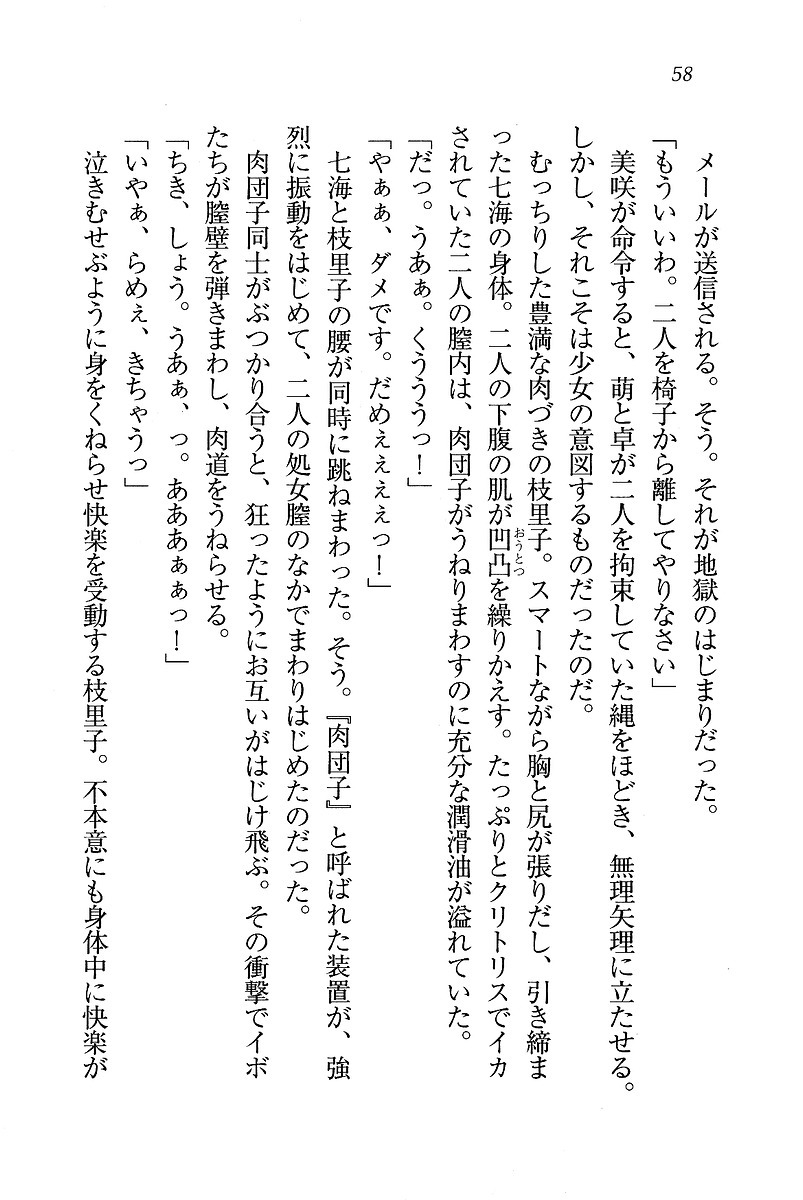 58
メールが送信される。そう。それが地獄のはじまりだった。
「もういいわ。二人を椅子から離してやりなさい」
美咲が命令すると、萌と卓が二人を拘束していた縄をほどき、無理矢理に立たせる。
しかし、それこそは少女の意図するものだったのだ。
むっちりした豊満な肉づきの枝里子。スマートながら胸と尻が張りだし、引き締ま
った七海の身体。二人の下腹の肌が凹凸おうとつを繰りかえす。たっぷりとクリトリスでイカ
されていた二人の膣内は、肉団子がうねりまわすのに充分な潤滑油が溢れていた。
「だっ。うあぁ。くうううっ！」
「やぁぁ、ダメです。だめぇぇぇぇっ！」
七海と枝里子の腰が同時に跳ねまわった。そう。『肉団子』と呼ばれた装置が、強
烈に振動をはじめて、二人の処女膣のなかでまわりはじめたのだった。
肉団子同士がぶつかり合うと、狂ったようにお互いがはじけ飛ぶ。その衝撃でイボ
たちが膣壁を弾きまわし、肉道をうねらせる。
「ちき、しょう。うあぁ、っ。あああぁぁっ！」
「いやぁ、らめぇ、きちゃうっ」
泣きむせぶように身をくねらせ快楽を受動する枝里子。不本意にも身体中に快楽が